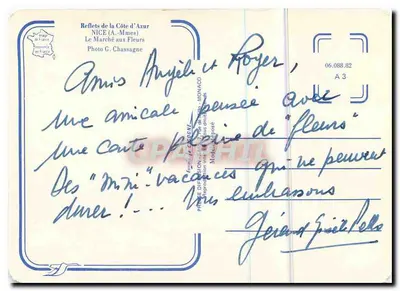 Reflets de la Côte d'Azur
NICE (A.-Mmes)
Le Marché aux Fleurs
Photo G. Chassagne
06.088.82
A 3
Amis Angèle et Royer,
une amicale pensée avec
une carte pleine de "fleurs"
Des "mini"-vacances qui ne peuvent
durer !... Vous embrassons
Gérard Gisèle